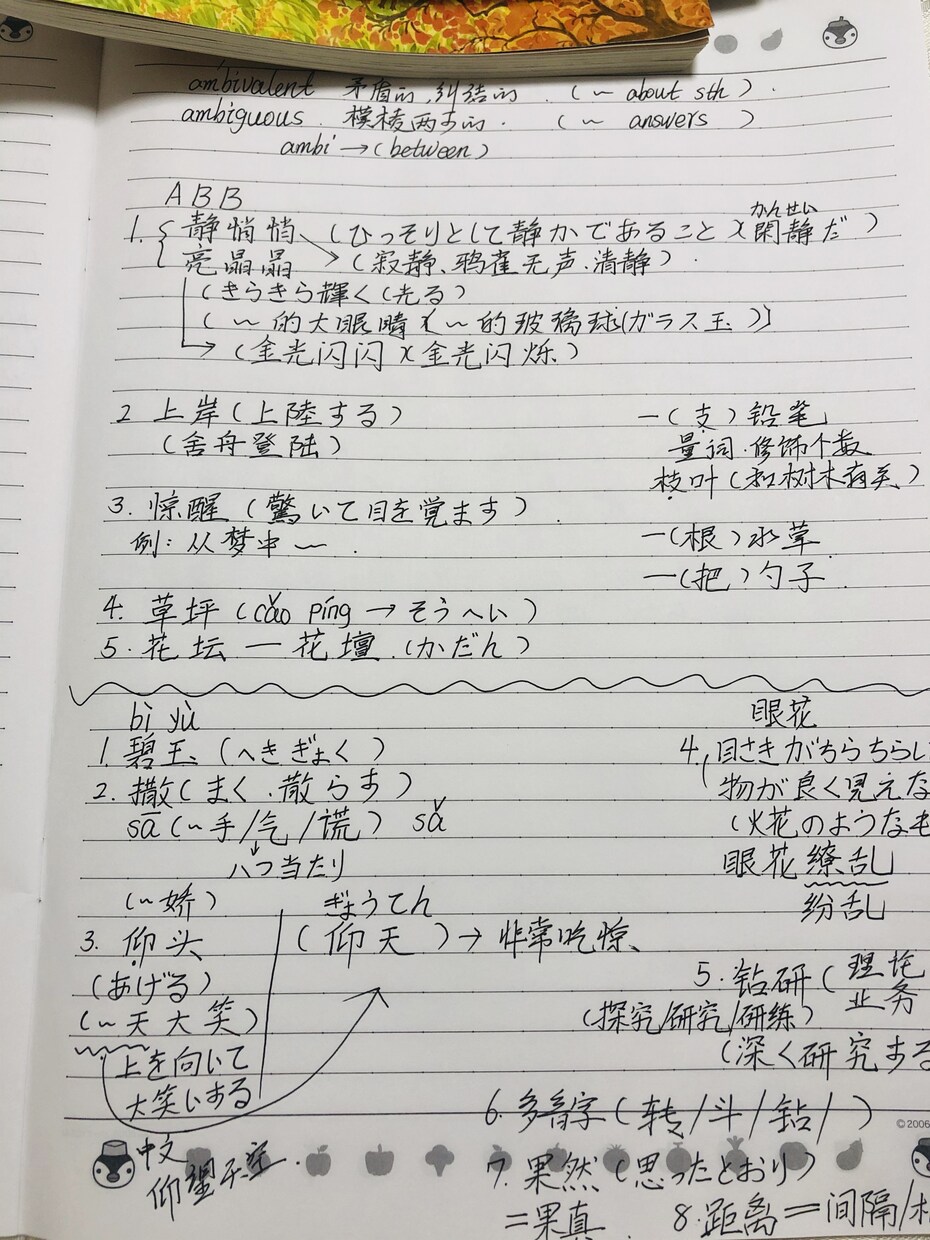 ambivalent 矛盾的、纠结的. (~ about sth).
ambiguous. 模棱两可的. (~ answers )
ambi→(between)
ABB
かんせい
1. 静悄悄 (ひっそりとして静かであること)(閑静だ)
亮晶晶 (寂静、鸦雀无声.清静).
(きらきら輝く(光る)
(~的大眼睛)(~的玻璃球(ガラス玉))
→(金光闪闪)(金光闪烁.)
2 上岸(上陸する)
(舍舟登陆)
一(支)铅笔
量词.修饰个数
枝叶(和树木有关)
3. 惊醒 (驚いて目を覚ます).
例:从梦中~.
一(根)水草
一(把)勺子.
4. 草坪(cǎo píng→そうへい)
5. 花坛—花壇.(かだん)
bì yù
1. 碧玉(へきぎょく)
2. 撒(まく.散らす)
sā(~手/气/谎) sǎ
八つ当たり
(~娇)
3. 仰头
(あげる)
(~天大笑)
上を向いて
大笑いする
ぎょうてん
(仰天)→非常吃惊、
中文
仰望天空.
眼花
4. 目さきがちらちらい
物が良く見えな
(火花のようなも
眼花缭乱
纷乱
5.钻研(理论
业务
(探究/研究/研练)
(深く研究する
6. 多音字(转/斗/钻/ )
7. 果然(思ったとおり)
=果真
8.距离=间隔/相
©2006